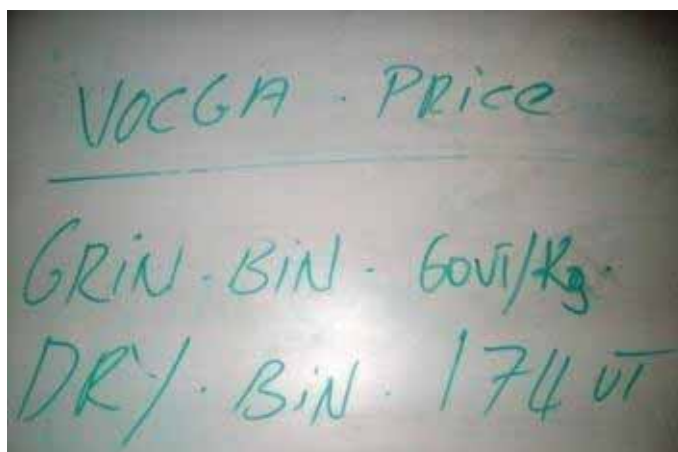 VOCGA . PRice
GRiN . BiN . 60VT/Kg.
DRY . BiN . 174 VT